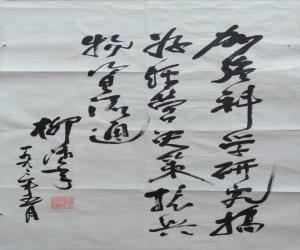 加强科学研究搞
好经营决策振兴
物资流通
柳随年
一九八八年五月